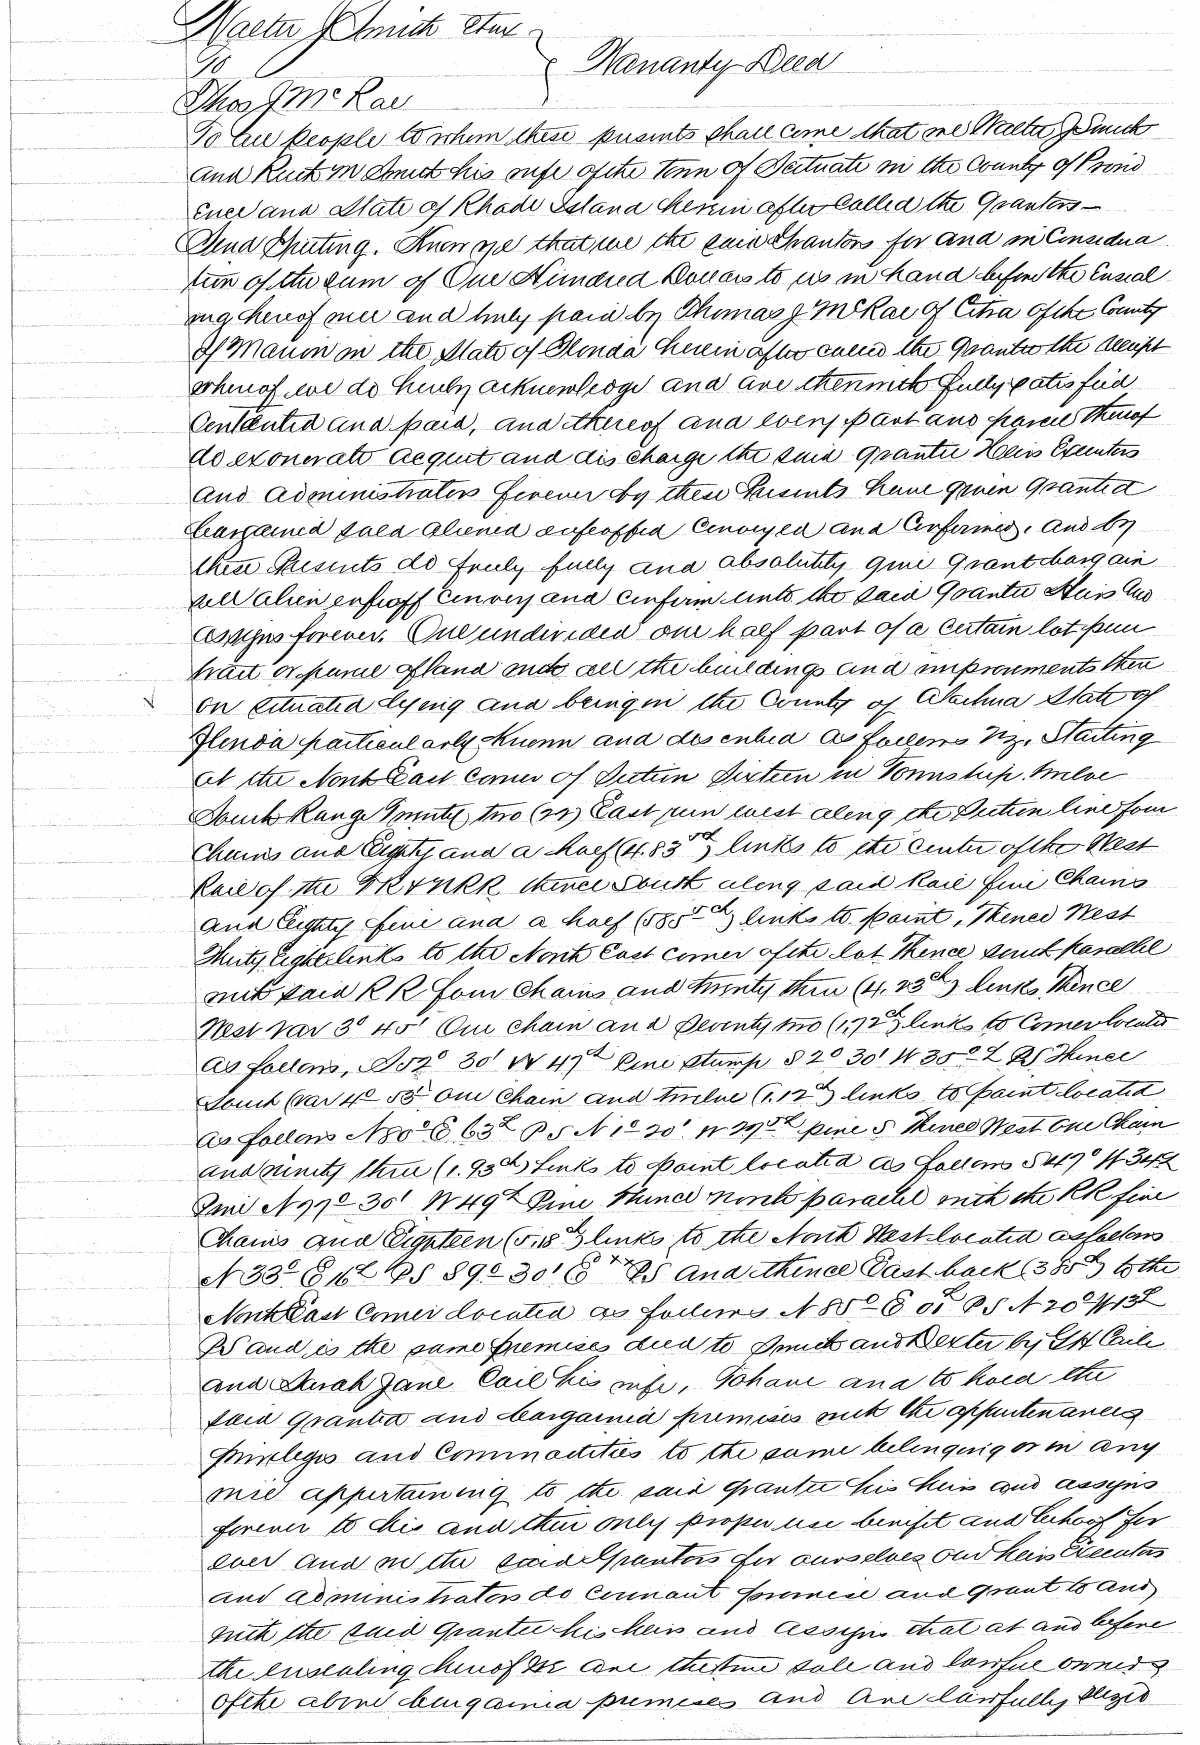 Walter J Smith etux
To
Warranty Deed
Thos J McRae
To all people to whom these presents shall come that we Walter J Smith
and Ruth M Smith his wife of the Town of Scituate in the County of Provid
ence and State of Rhode Island herein after Called the Grantors—
Send Greeting. Know ye that we the said Grantors for and in Considera
tion of the sum of One Hundred Dollars to us in hand before the Enseal
ing hereof well and truly paid by Thomas J McRae of Citra of the County
of Marion in the State of Florida herein after called the Grantee the receipt
whereof we do hereby acknowledge and are therewith fully satisfied
Contented and paid, and thereof and every part and parcel thereof
do exonerate acquit and discharge the said grantee Heirs Executors
and administrators forever by these Presents have given granted
bargained sold aliened enfeoffed Conveyed and Confirmed, and by
these Presents do freely fully and absolutely give grant bargain
sell alien enfeoff Convey and confirm unto the said Grantee Heirs and
assigns forever. One undivided one half part of a certain lot piece
tract or parcel of land with all the buildings and improvements there
on situated lying and being in the County of Alachua State of
Florida particularly Known and described as follows Viz. Starting
at the North East Corner of Section Sixteen in Township twelve
South Range Twenty two (22) East run west along the Section line four
Chains and Eighty and a half (4.83 ) links to the center of the West
Rail of the RR thence South along said Rail five Chains
and Eighty five and a half (585 ) links to point, Thence West
Thirty Eight links to the North East corner of the lot Thence south parallel
with said RR four Chains and twenty three (4.23 ch) links Thence
West Var 3° 45' One chain and Seventy two (1.72 ch) links to Corner located
as follows, S 52° 30' W 47 L Pine Stump S 2° 30' W 35 L PS Thence
South (Var 4° 55' One Chain and twelve (1.12 ch) links to point located
as follows N 80° E 63 L PS N 1° 20' W 29 L pine S Thence West One Chain
and ninety three (1.93 ch) links to point located as follows S 47° W 34 L
Pine N 77° 30' W 49 L Pine Thence North parallel with the RR five
Chains and Eighteen (5.18 ch) links to the North West located as follows
N 33° E 16 L PS 89° 30' E PS and thence East back (385 ) to the
North East Corner located as follows N 85° E PS N 20° W 13 L
PS and is the same premises deed to Smith and Dexter by
and Sarah Jane Cail his wife, To have and to hold the
said granted and bargained premises with the appurtenances
privileges and Commodities to the same belonging or in any
wise appertaining to the said grantee his heirs and assigns
forever to his and their only proper use benefit and behoof for
ever and we the said Grantors for ourselves our heirs Executors
and administrators do covenant promise and grant to and
with the said grantee his heirs and assigns that at and before
the ensealing hereof We are the true sole and lawful owners
of the above bargained premises and are lawfully seized